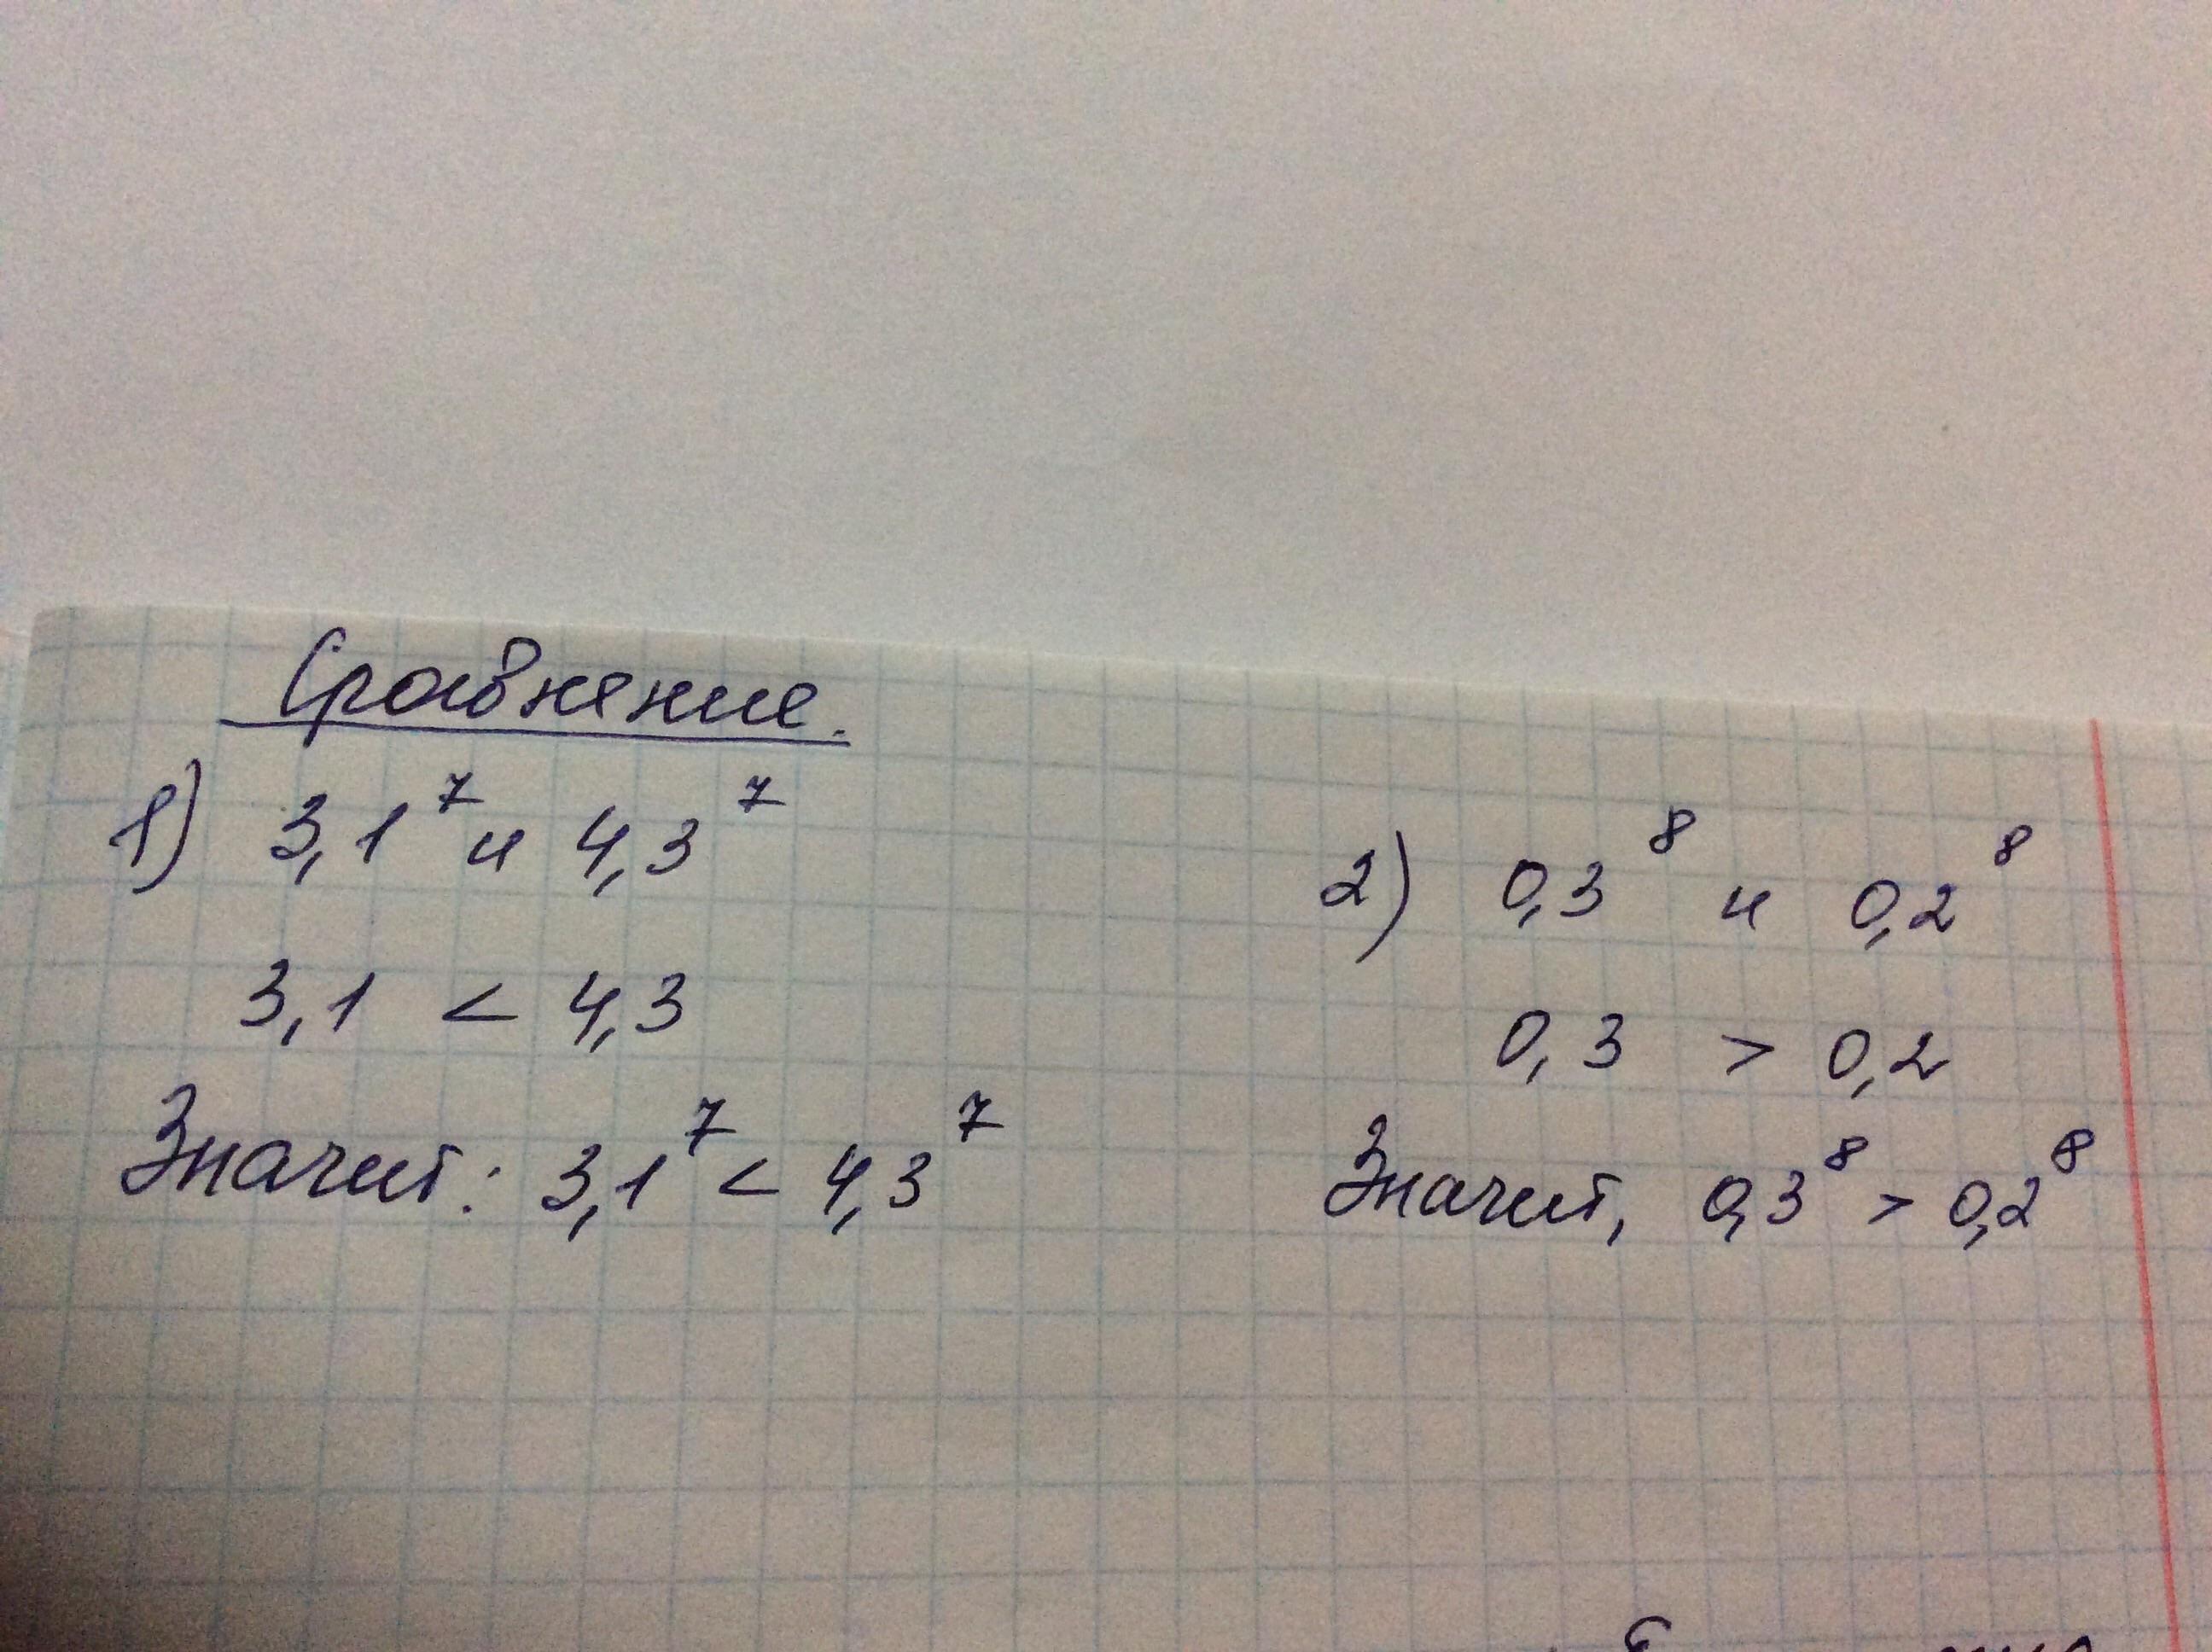 Сравнение.
1) 3,1⁷ и 4,3⁷
3,1 < 4,3
Значит: 3,1⁷ < 4,3⁷
2) 0,3⁸ и 0,2⁸
0,3 > 0,2
Значит, 0,3⁸ > 0,2⁸